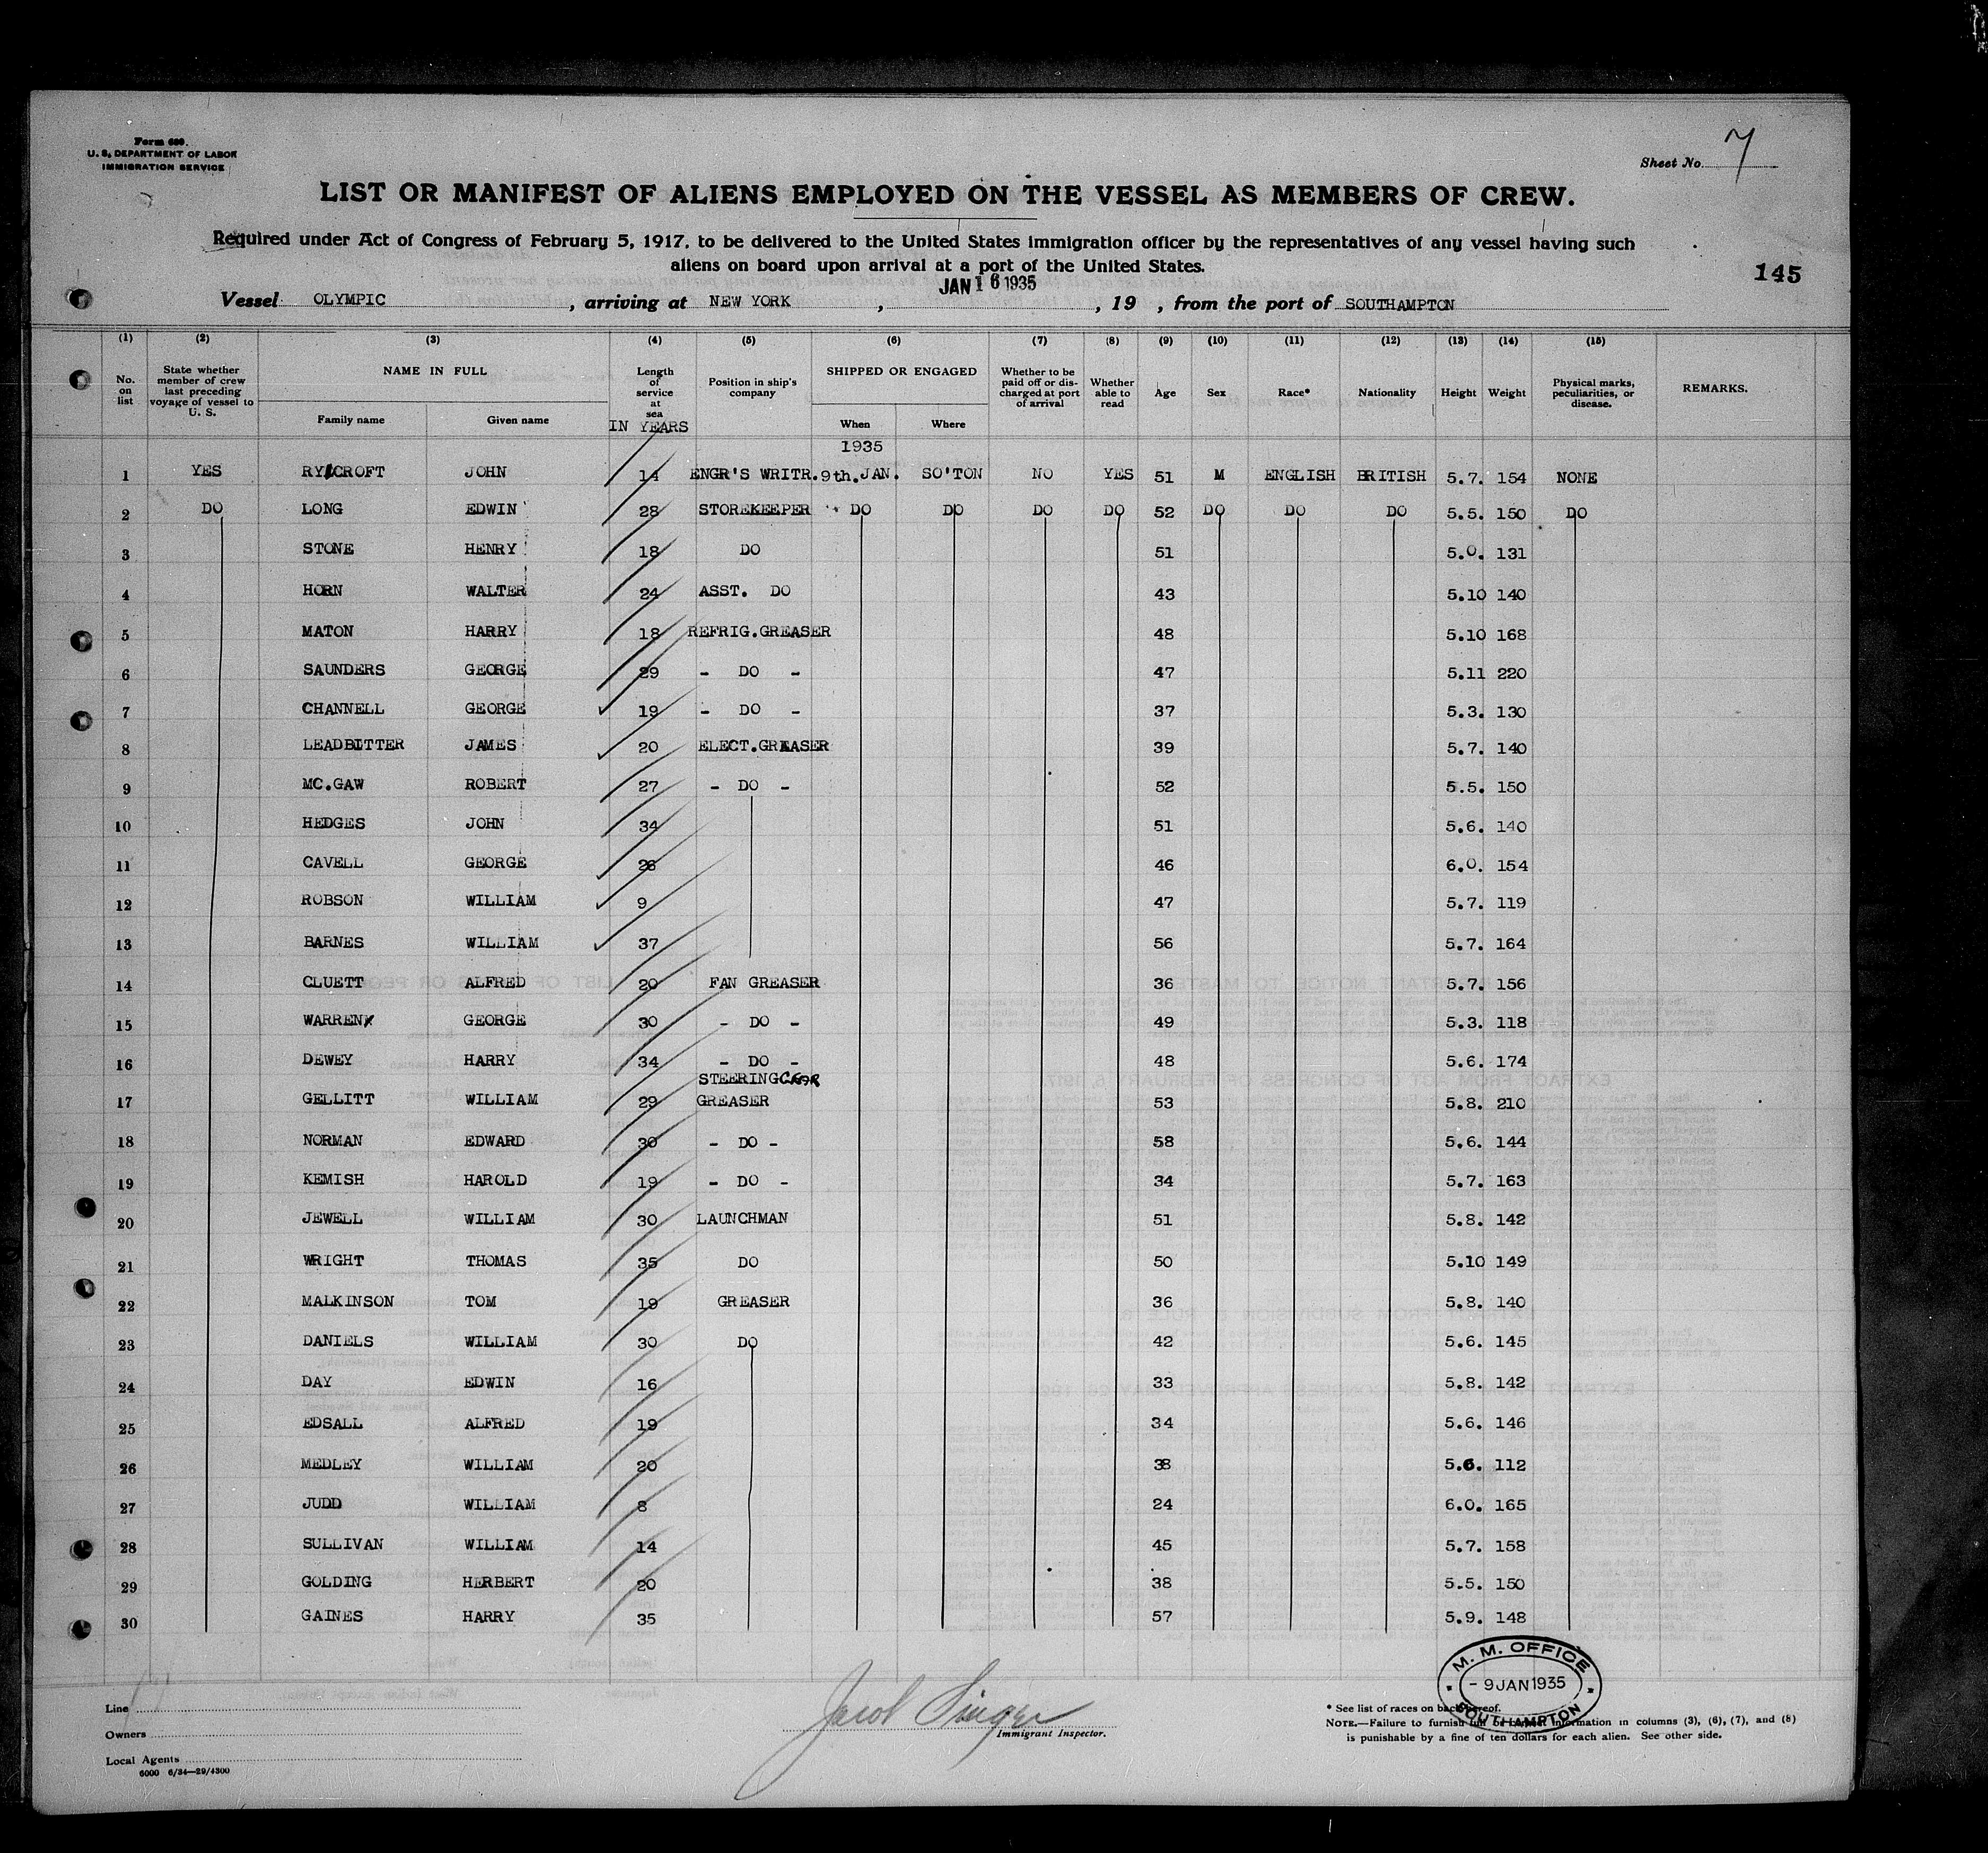 Form 680.
U. S. DEPARTMENT OF LABOR
IMMIGRATION SERVICE
Sheet No. 7
LIST OR MANIFEST OF ALIENS EMPLOYED ON THE VESSEL AS MEMBERS OF CREW.
Required under Act of Congress of February 5, 1917, to be delivered to the United States immigration officer by the representatives of any vessel having such
aliens on board upon arrival at a port of the United States.
145
JAN 16 1935
Vessel OLYMPIC , arriving at NEW YORK , , 19 , from the port of SOUTHAMPTON
(1) (2) (3) (4) (5) (6) (7) (8) (9) (10) (11) (12) (13) (14) (15)
No. on list State whether member of crew last preceding voyage of vessel to U. S. NAME IN FULL Family name Given name Length of service at sea IN YEARS Position in ship's company SHIPPED OR ENGAGED When Where Whether to be paid off or discharged at port of arrival Whether able to read Age Sex Race* Nationality Height Weight Physical marks, peculiarities, or disease. REMARKS.
1935
1 YES RYCROFT JOHN 14 ENGR'S WRITR. 9th.JAN. SO'TON NO YES 51 M ENGLISH BRITISH 5.7. 154 NONE
2 DO LONG EDWIN 28 STOREKEEPER DO DO DO DO 52 DO DO DO 5.5. 150 DO
3 STONE HENRY 18 DO 51 5.0. 131
4 HORN WALTER 24 ASST. DO 43 5.10 140
5 MATON HARRY 18 REFRIG.GREASER 48 5.10 168
6 SAUNDERS GEORGE 29 - DO - 47 5.11 220
7 CHANNELL GEORGE 19 - DO - 37 5.3. 130
8 LEADBITTER JAMES 20 ELECT.GREASER 39 5.7. 140
9 MC.GAW ROBERT 27 - DO - 52 5.5. 150
10 HEDGES JOHN 34 51 5.6. 140
11 CAVELL GEORGE 26 46 6.0. 154
12 ROBSON WILLIAM 9 47 5.7. 119
13 BARNES WILLIAM 37 56 5.7. 164
14 CLUETT ALFRED 20 FAN GREASER 36 5.7. 156
15 WARREN GEORGE 30 - DO - 49 5.3. 118
16 DEWEY HARRY 34 - DO - 48 5.6. 174
STEERING GEAR
17 GELLITT WILLIAM 29 GREASER 53 5.8. 210
18 NORMAN EDWARD 30 - DO - 58 5.6. 144
19 KEMISH HAROLD 19 - DO - 34 5.7. 163
20 JEWELL WILLIAM 30 LAUNCHMAN 51 5.8. 142
21 WRIGHT THOMAS 35 DO 50 5.10 149
22 MALKINSON TOM 19 GREASER 36 5.8. 140
23 DANIELS WILLIAM 30 DO 42 5.6. 145
24 DAY EDWIN 16 33 5.8. 142
25 EDSALL ALFRED 19 34 5.6. 146
26 MEDLEY WILLIAM 20 38 5.6. 112
27 JUDD WILLIAM 8 24 6.0. 165
28 SULLIVAN WILLIAM 14 45 5.7. 158
29 GOLDING HERBERT 20 38 5.5. 150
30 GAINES HARRY 35 57 5.9. 148
M. M. OFFICE
- 9 JAN 1935
SOUTHAMPTON
Line
Owners
Local Agents
6000 6/34—29/4300
Jacob Singer
Immigrant Inspector.
* See list of races on back hereof.
NOTE.—Failure to furnish full or correct information in columns (3), (6), (7), and (8)
is punishable by a fine of ten dollars for each alien. See other side.